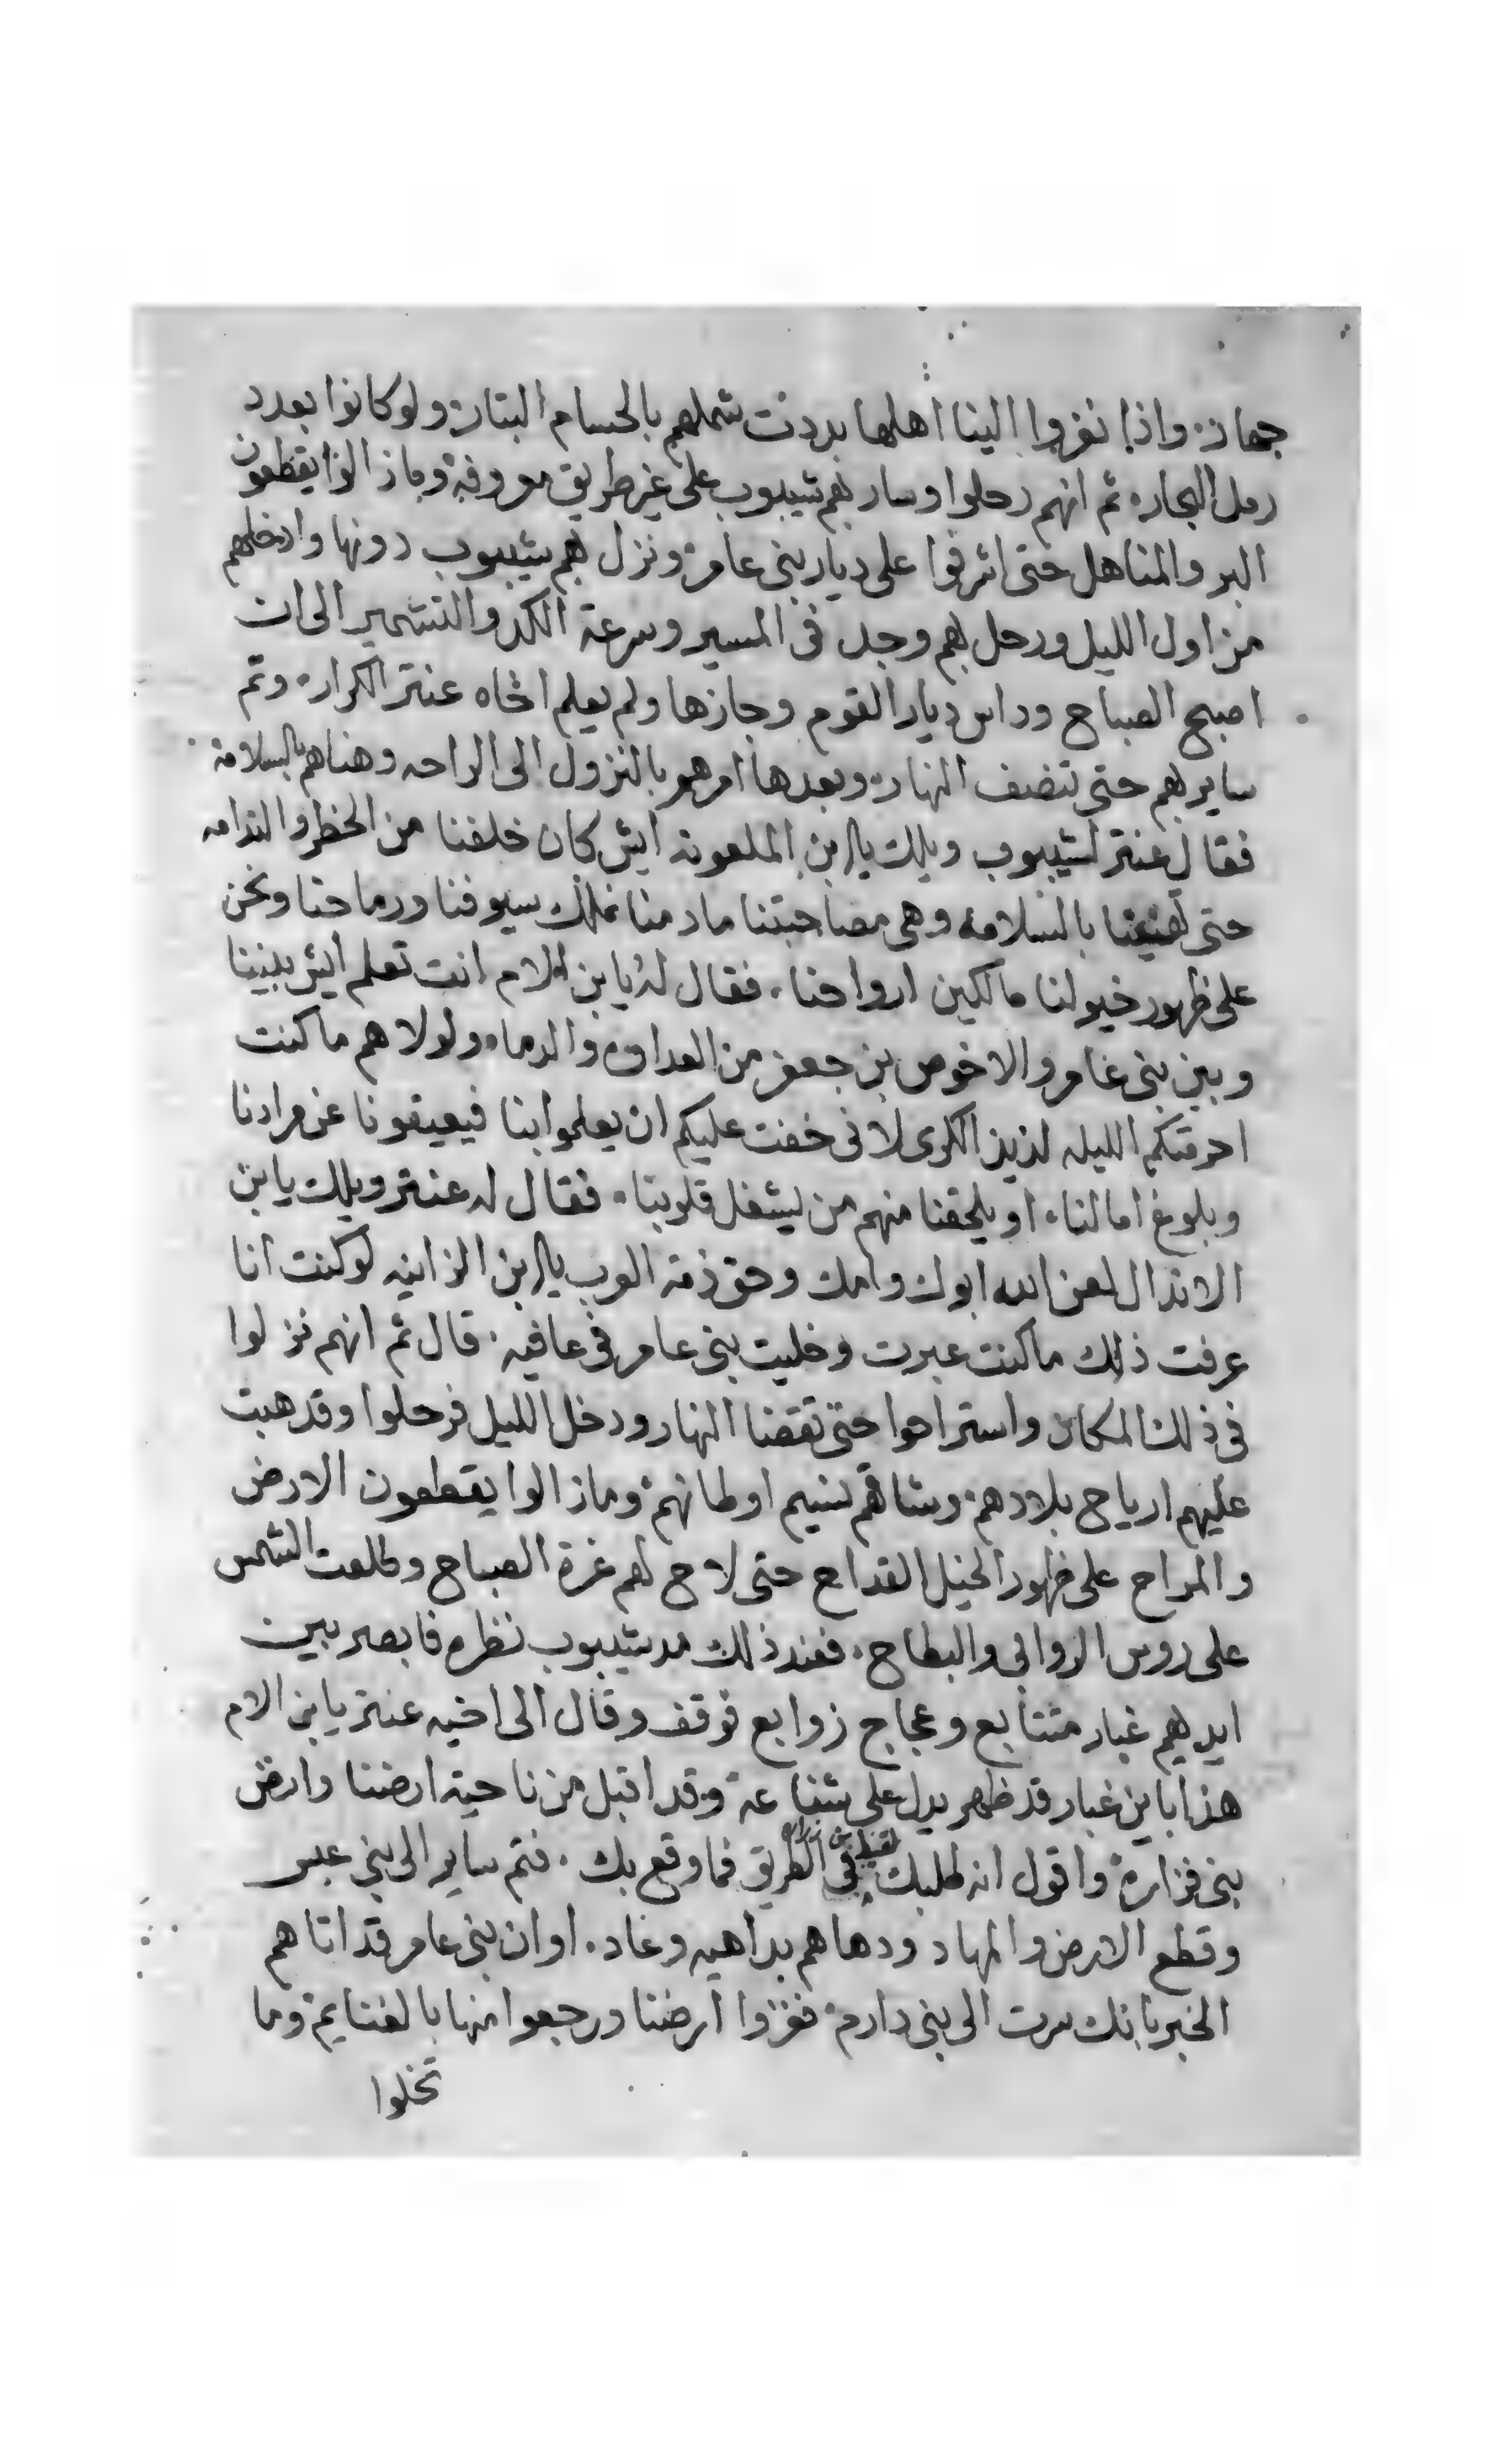 جهار، واذا نفروا الينا اهلها بددت شملهم بالحسام البتار، ولو كانوا بعدد
رمل البحار، ثم انهم رحلوا وسار بهم شيبوب على غير طريق معروفة، وما زالوا يقطعون
البر والمناهل حتى اشرفوا على ديار بنى عامر، ونزل بهم شيبوب دونها وادخلهم
من اول الليل ورحل بهم وجد فى المسير وسرعة الكد والتشمير الى ان
اصبح الصباح وداس ديار القوم وجازها ولم يعلم اخاه عنتر الكرار، وتم
ساير بهم حتى تنضف النهار، وبعدها امرهم بالنزول الى الراحه وهناهم بالسلامة
فقال عنتر لشيبوب ويلك يا ابن الملعونه ايش كان خلفنا من الخطر والندامه
حتى تهنينا بالسلامه وهى مصاحبتنا ما دمنا نملك سيوفنا ورماحنا ونحن
على ظهور خيولنا مالكين ارواحنا، فقال له يا بن الام انت تعلم ايش بيننا
وبين بنى عامر والاخوص بن جعفر من العداوه والدماء ولولا هم ما كنت
احرمتكم الليله لذيذ الكرى لانى خفت عليكم ان يعلموا بنا فيعيقونا عن مرادنا
وبلوغ امالنا، او يلحقنا منهم من يشغل قلوبنا، فقال له عنتر ويلك يا بن
الاندال لعن الله ابوك وامك وحق ذمة العرب يا ابن الزانيه لو كنت انا
عرفت ذلك ما كنت عبرت وخليت بنى عامر فى عافيه، قال ثم انهم نزلوا
فى ذلك المكان واستراحوا حتى تقضا النهار ودخل الليل فرحلوا وقد هبت
عليهم ارياح بلادهم، وشاقهم نسيم اوطانهم، وما زالوا يقطعون الارض
والمراح على ظهور الخيل القداح حتى لاح لهم غرة الصباح وطلعت الشمس
على روس الروابى والبطاح، فعند ذلك مد شيبوب نظره فابصر بين
ايديهم غبار متتابع وعجاج زوابع فوقف وقال الى اخيه عنتر يا بن الام
هذا باين غبار قد ظهر يدل على شناعة، وقد اقبل من ناحية ارضنا وارض
بنى فزارة واقول انه طلبك لقيط بن زراره فى الطريق فما وقع بك، فتم ساير الى بنى عبس
وقطع الارض والمهاد ودهاهم بداهيه وعاد، او ان بنى عامر قد اتاهم
الخبر بانك سرت الى بنى دارم، فغزوا ارضنا ورجعوا منها بالغنايم، وما
تخلوا